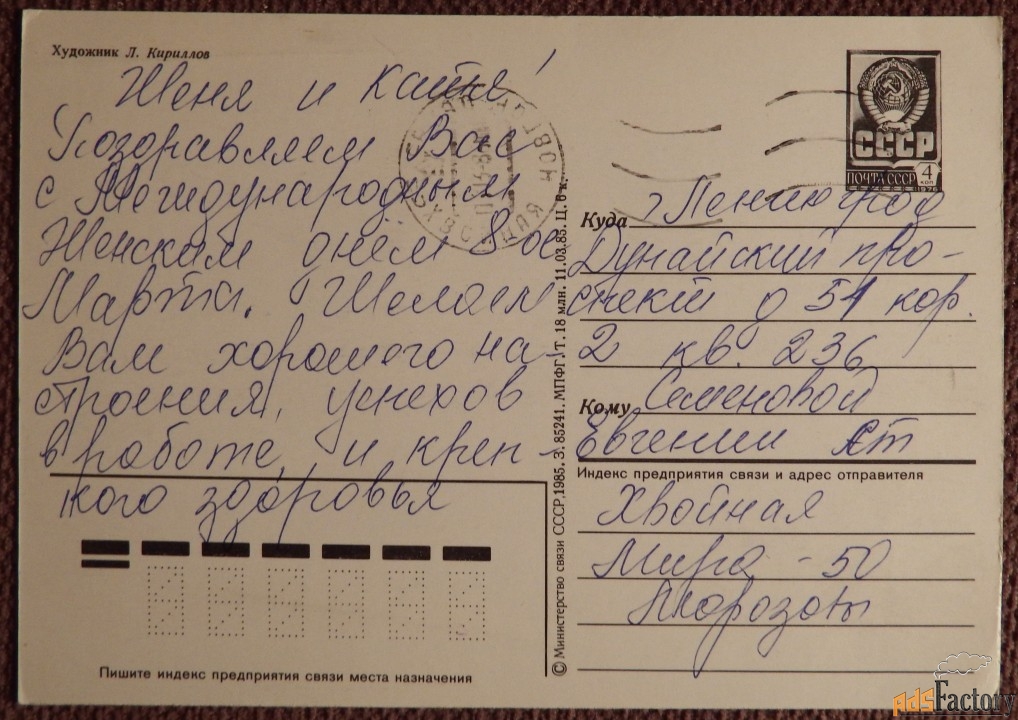 Художник Л. Кириллов
Женя и Катя!
Поздравляем Вас
с Международным
Женским днем 8ое
Марта. Желаем
Вам хорошего на-
строения, успехов
в работе, и креп-
кого здоровья
СССР
ПОЧТА СССР 4 коп
1976
Куда г Ленинград
Дунайский про-
спект д 51 кор.
2 кв. 236
Кому Семеновой
Евгении
Индекс предприятия связи и адрес отправителя
Хвойная
Мира - 50
© Министерство связи СССР. 1985. З. 85241. МПФГ. Т. 18 млн. 11.03.85. Ц. 6 к.
Пишите индекс предприятия связи места назначения
AdsFactory